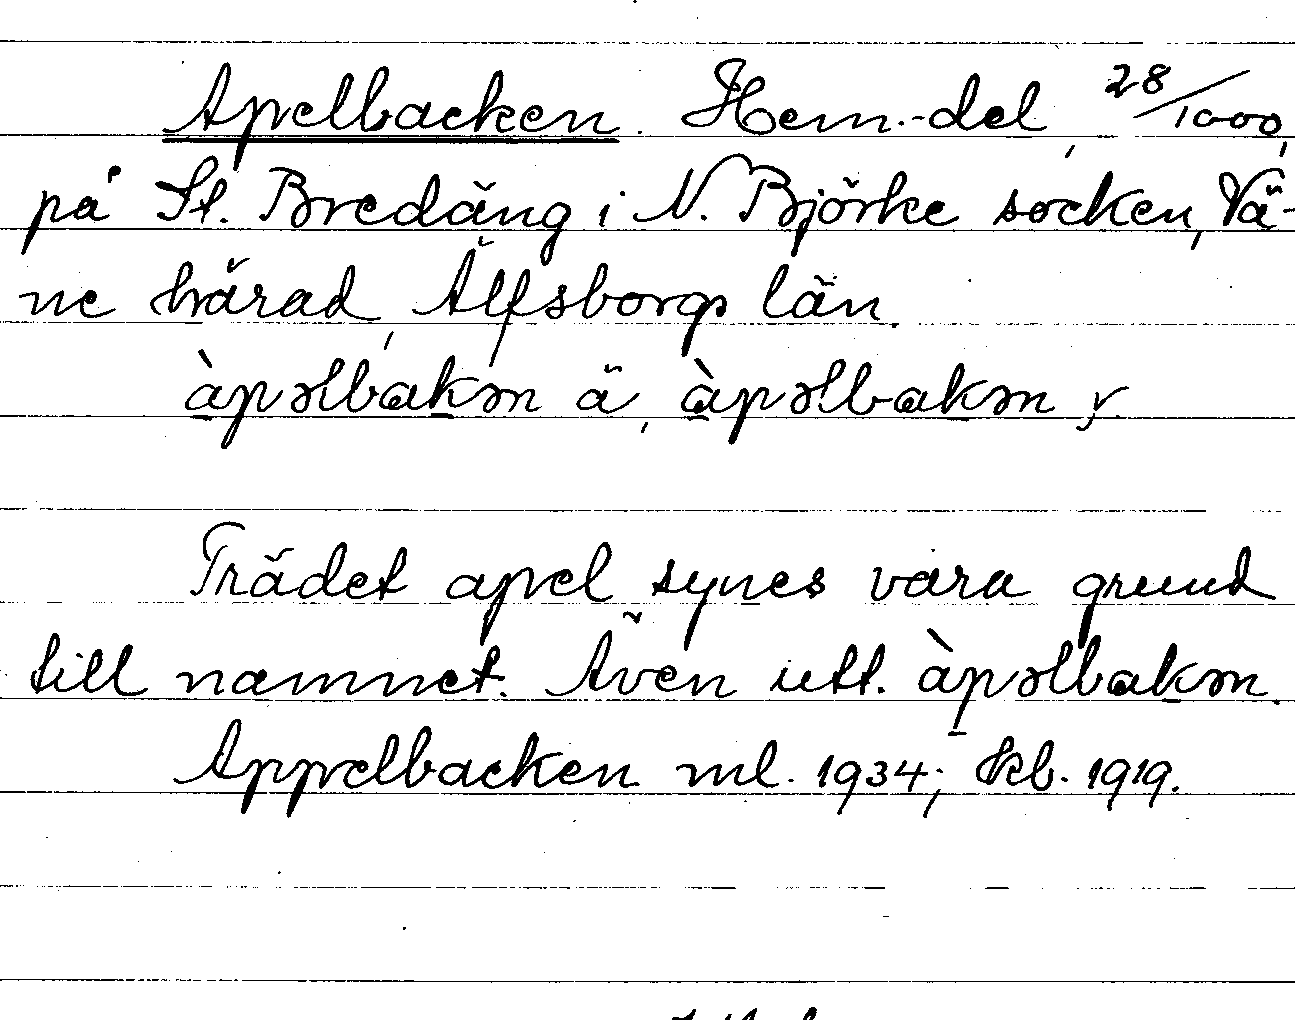 Apelbacken. Hem.-del, 28/1000,
på St. Bredäng i N. Björke socken, Vä-
ne härad, Älfsborgs län.
àpəlbakən ä, àpəlbakən y
Trädet apel synes vara grund
till namnet. Även utt. àpəlbakən.
Appelbacken ml. 1934; kb. 1919.